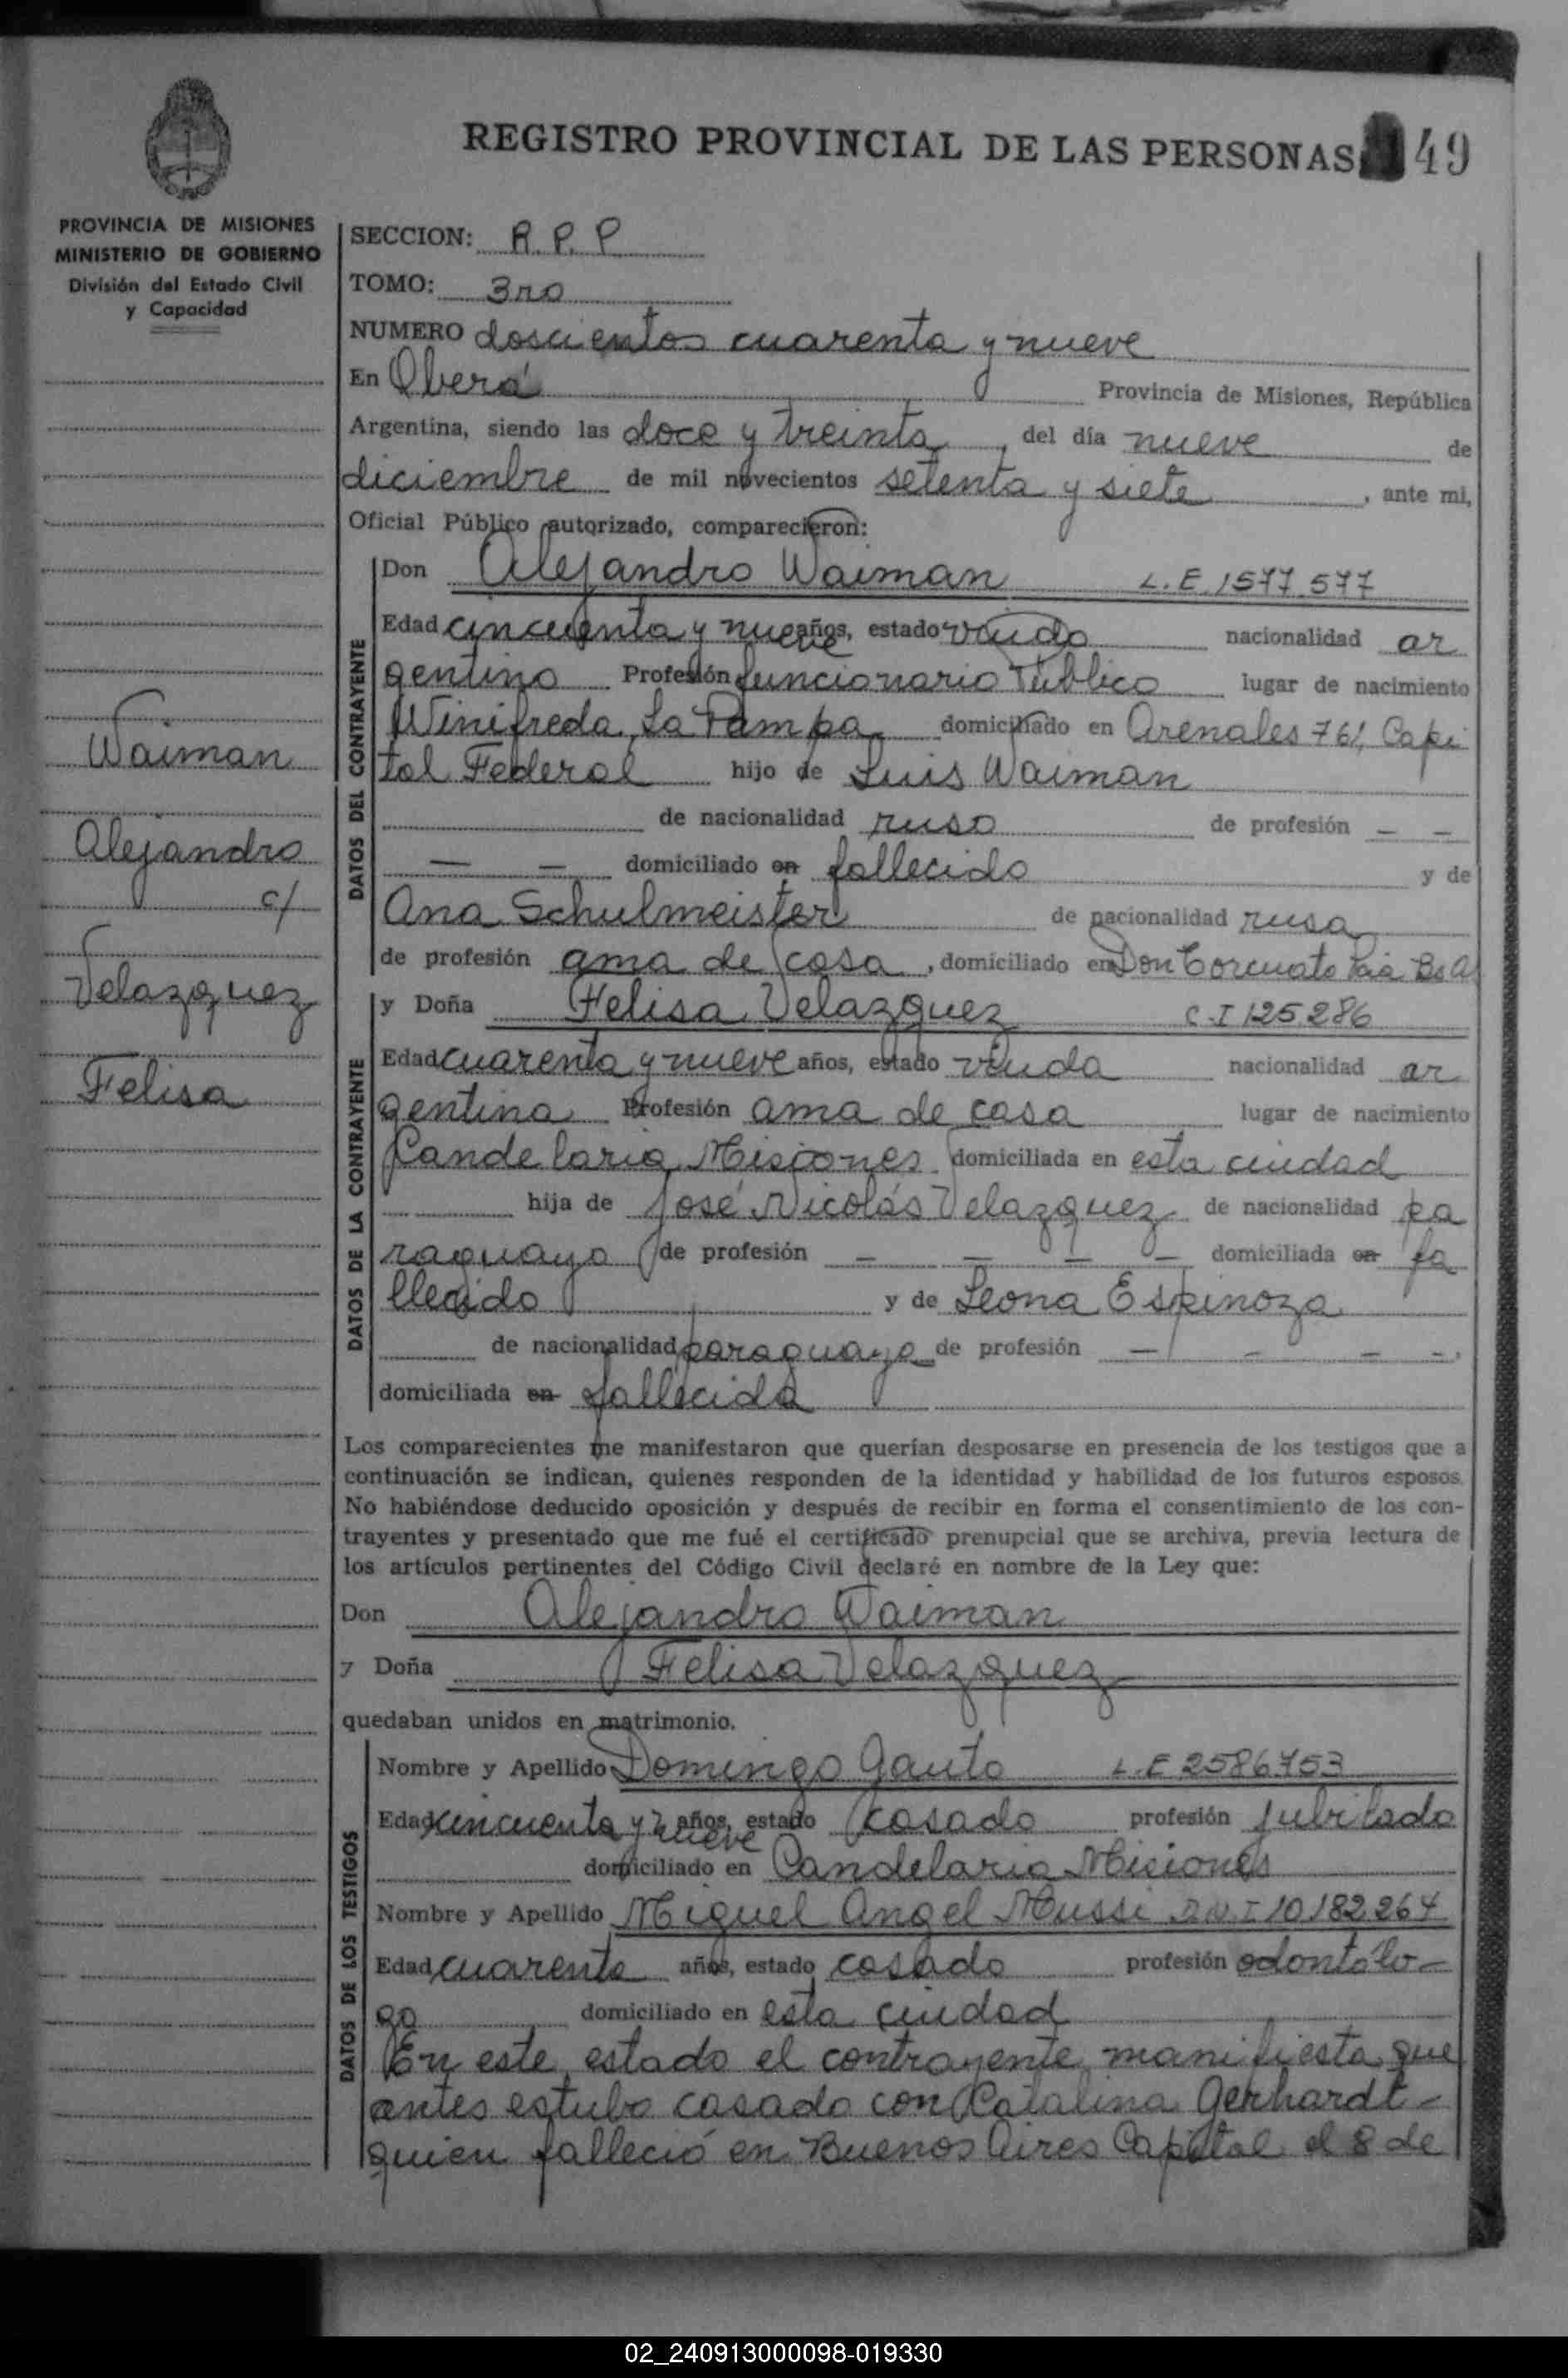 REGISTRO PROVINCIAL DE LAS PERSONAS 49
PROVINCIA DE MISIONES
MINISTERIO DE GOBIERNO
División del Estado Civil
y Capacidad
Waiman
Alejandro
c/
Velazquez
Felisa
SECCION: R.P.P
TOMO: 3ro
NUMERO doscientos cuarenta y nueve
En Oberá Provincia de Misiones, República
Argentina, siendo las doce y treinta, del día nueve de
diciembre de mil novecientos setenta y siete, ante mi,
Oficial Público autorizado, comparecieron:
DATOS DEL CONTRAYENTE
Don Alejandro Waiman L.E. 1577.577
Edad cincuenta y nueve años, estado viudo nacionalidad ar
gentino Profesión funcionario Público lugar de nacimiento
Winifreda, La Pampa domiciliado en Arenales 761, Capi
tal Federal hijo de Luis Waiman
de nacionalidad ruso de profesión — —
— — domiciliado en fallecido y de
Ana Schulmeister de nacionalidad rusa
de profesión ama de casa, domiciliado en Don Torcuato Bs A
DATOS DE LA CONTRAYENTE
y Doña Felisa Velazquez C.I 125.286
Edad cuarenta y nueve años, estado viuda nacionalidad ar
gentina Profesión ama de casa lugar de nacimiento
Candelaria Misiones domiciliada en esta ciudad
hija de José Nicolás Velazquez de nacionalidad pa
raguayo de profesión — — — — domiciliada en fa
llecido y de Leona Espinoza
de nacionalidad paraguaya de profesión — — — —,
domiciliada en fallecida
Los comparecientes me manifestaron que querían desposarse en presencia de los testigos que a
continuación se indican, quienes responden de la identidad y habilidad de los futuros esposos.
No habiéndose deducido oposición y después de recibir en forma el consentimiento de los con-
trayentes y presentado que me fué el certificado prenupcial que se archiva, previa lectura de
los artículos pertinentes del Código Civil declaré en nombre de la Ley que:
Don Alejandro Waiman
y Doña Felisa Velazquez
quedaban unidos en matrimonio.
DATOS DE LOS TESTIGOS
Nombre y Apellido Domingo Gauto L.E 2586753
Edad cincuenta y nueve años, estado casado profesión jubilado
domiciliado en Candelaria Misiones
Nombre y Apellido Miguel Angel Mussi D.N.I 10.182.264
Edad cuarenta años, estado casado profesión odontólo-
go domiciliado en esta ciudad
En este estado el contrayente manifiesta que
antes estubo casado con Catalina Gerhardt -
quien falleció en Buenos Aires Capital el 8 de
02_240913000098-019330